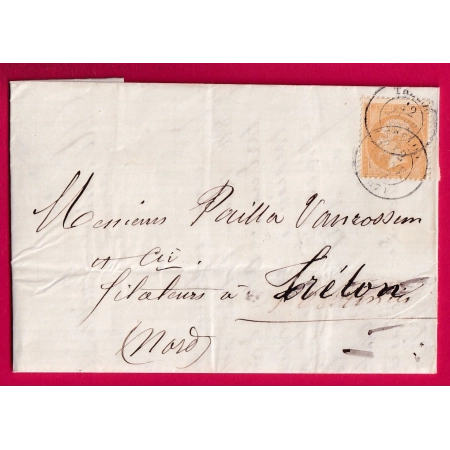 Messieurs Pailla Vanrossum
et Cie
filateurs à Tréton
(Nord)